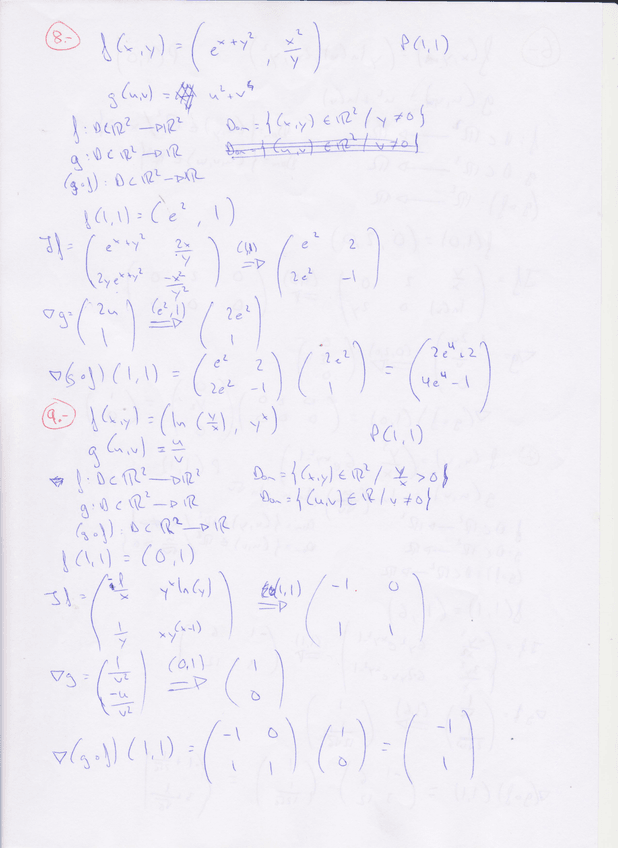 8.- f(x,y) = (e^{x+y²}, x²/y) P(1,1)
g(u,v) = u²+v⁴
f: D⊂ℝ² → ℝ² Dom = {(x,y) ∈ ℝ² / y ≠ 0}
g: D⊂ℝ² → ℝ Dom = {(u,v) ∈ ℝ² / v ≠ 0}
(g∘f): D⊂ℝ² → ℝ
f(1,1) = (e², 1)
Jf = (e^{x+y²} 2x/y ; 2ye^{x+y²} -x²/y²) (1,1) ⇒ (e² 2 ; 2e² -1)
∇g = (2u ; 1) (e²,1) ⇒ (2e² ; 1)
∇(g∘f)(1,1) = (e² 2 ; 2e² -1) (2e² ; 1) = (2e⁴+2 ; 4e⁴-1)
9.- f(x,y) = (ln(y/x), y^x)
P(1,1)
g(u,v) = u/v
f: D⊂ℝ² → ℝ² Dom = {(x,y) ∈ ℝ² / y/x > 0}
g: D⊂ℝ² → ℝ Dom = {(u,v) ∈ ℝ / v ≠ 0}
(g∘f): D⊂ℝ² → ℝ
f(1,1) = (0,1)
Jf = (-1/x y^x ln(y) ; 1/y xy^{(x-1)}) (1,1) ⇒ (-1 0 ; 1 1)
∇g = (1/v² ; -u/v²) (0,1) ⇒ (1 ; 0)
∇(g∘f)(1,1) = (-1 0 ; 1 1) (1 ; 0) = (-1 ; 1)